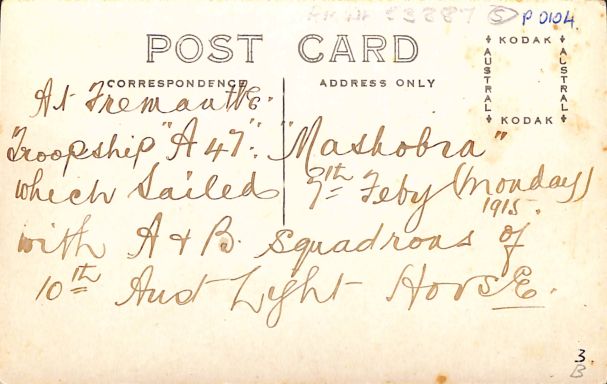 23287 5 P 0104
POST CARD
KODAK
AUSTRAL AUSTRAL
KODAK
CORRESPONDENCE ADDRESS ONLY
At Fremantle.
Troopship "A 47". "Mashobra"
which Sailed 9th Feby (Monday)
1915.
with A & B. Squadrons of
10th Aust Light HorsE.
3
B